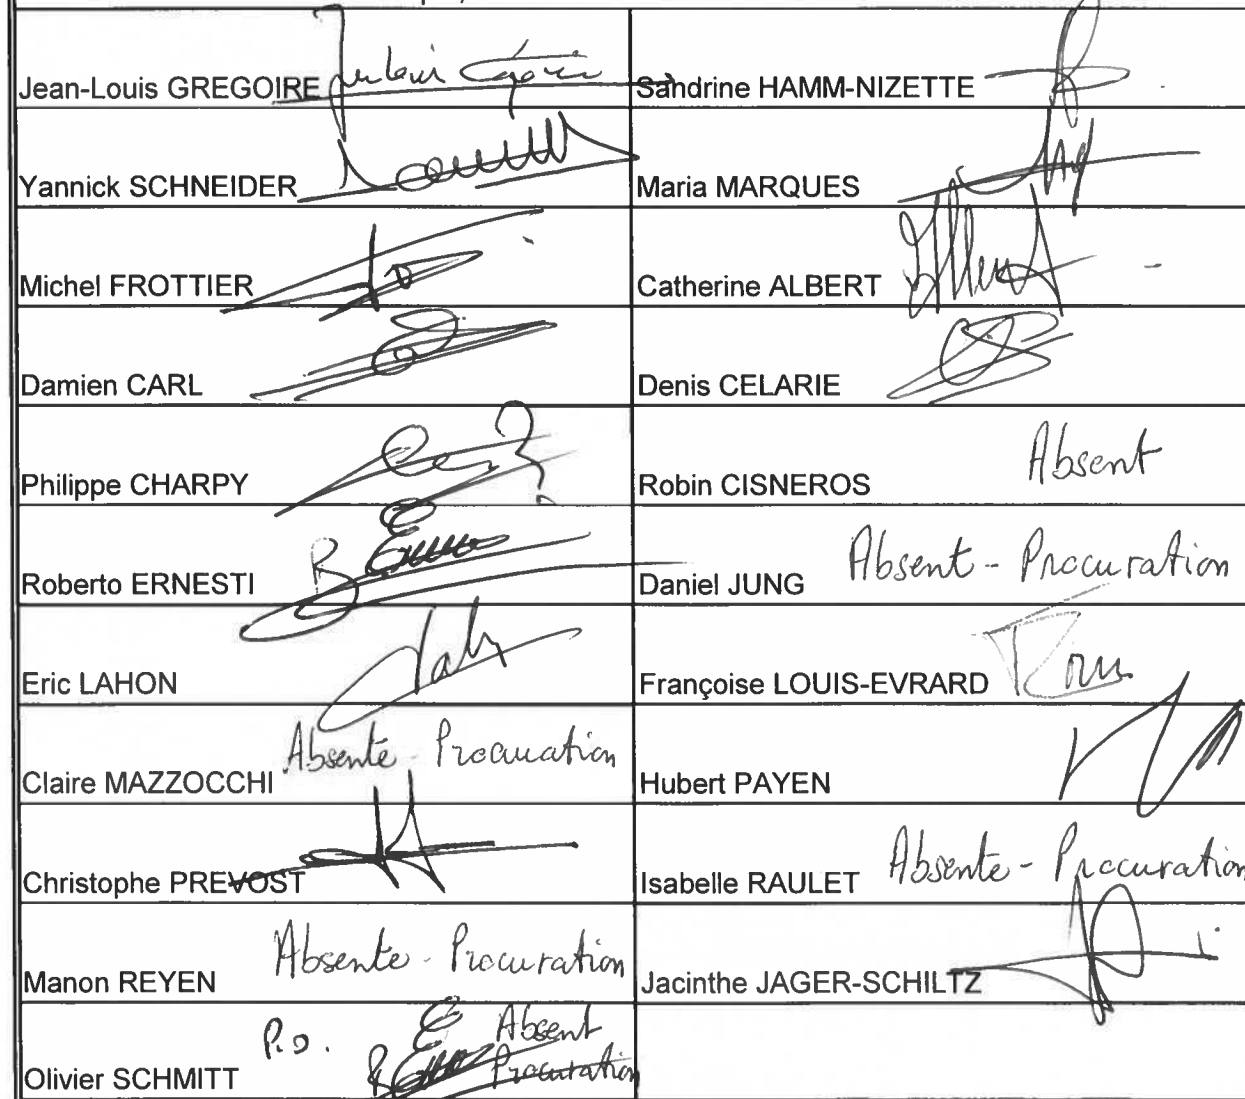 Jean-Louis GREGOIRE
Sandrine HAMM-NIZETTE
Yannick SCHNEIDER
Maria MARQUES
Michel FROTTIER
Catherine ALBERT
Damien CARL
Denis CELARIE
Philippe CHARPY
Robin CISNEROS Absent
Roberto ERNESTI
Daniel JUNG Absent - Procuration
Eric LAHON
Françoise LOUIS-EVRARD
Claire MAZZOCCHI Absente - Procuration
Hubert PAYEN
Christophe PREVOST
Isabelle RAULET Absente - Procuration
Manon REYEN Absente - Procuration
Jacinthe JAGER-SCHILTZ
P.O. Absent
Olivier SCHMITT Procuration